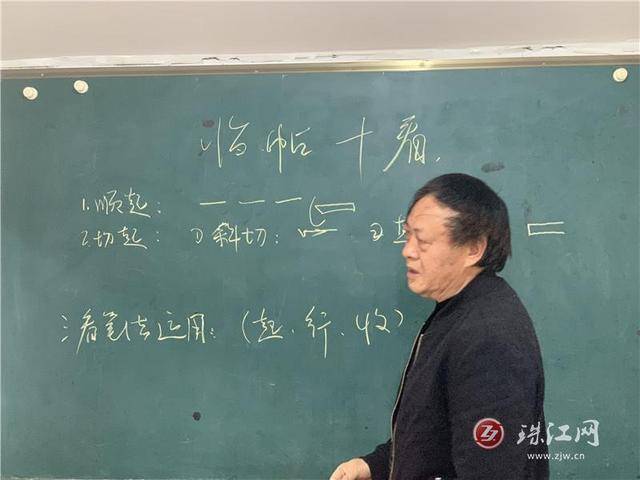 临帖十看.
1.顺起:
2.切起: ①斜切: ②
三看笔法运用:(起、行、收)
珠江网
www.zjw.cn